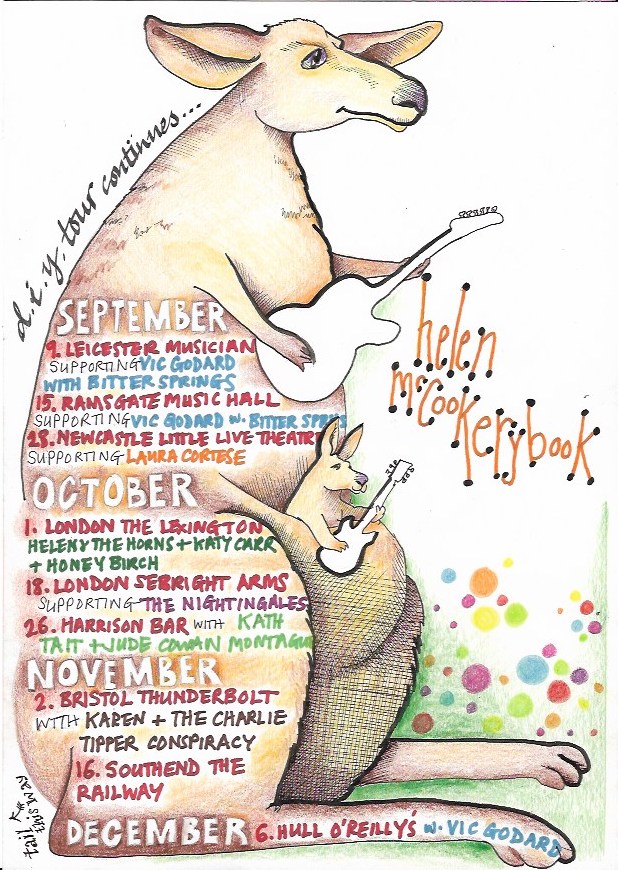 d.i.y. tour continues...
helen
McCookerybook
SEPTEMBER
9. LEICESTER MUSICIAN
SUPPORTING VIC GODARD
WITH BITTER SPRINGS
15. RAMSGATE MUSIC HALL
SUPPORTING VIC GODARD W. BITTER SPRGS
23. NEWCASTLE LITTLE LIVE THEATRE
SUPPORTING LAURA CORTESE
OCTOBER
1. LONDON THE LEXINGTON
HELEN & THE HORNS + KATY CARR
+ HONEY BIRCH
18. LONDON SEBRIGHT ARMS
SUPPORTING THE NIGHTINGALES
26. HARRISON BAR WITH KATH
TAIT + JUDE COWAN MONTAGUE
NOVEMBER
2. BRISTOL THUNDERBOLT
WITH KAREN + THE CHARLIE
TIPPER CONSPIRACY
16. SOUTHEND THE
RAILWAY
tail
this way
DECEMBER 6. HULL O'REILLY'S W. VIC GODARD